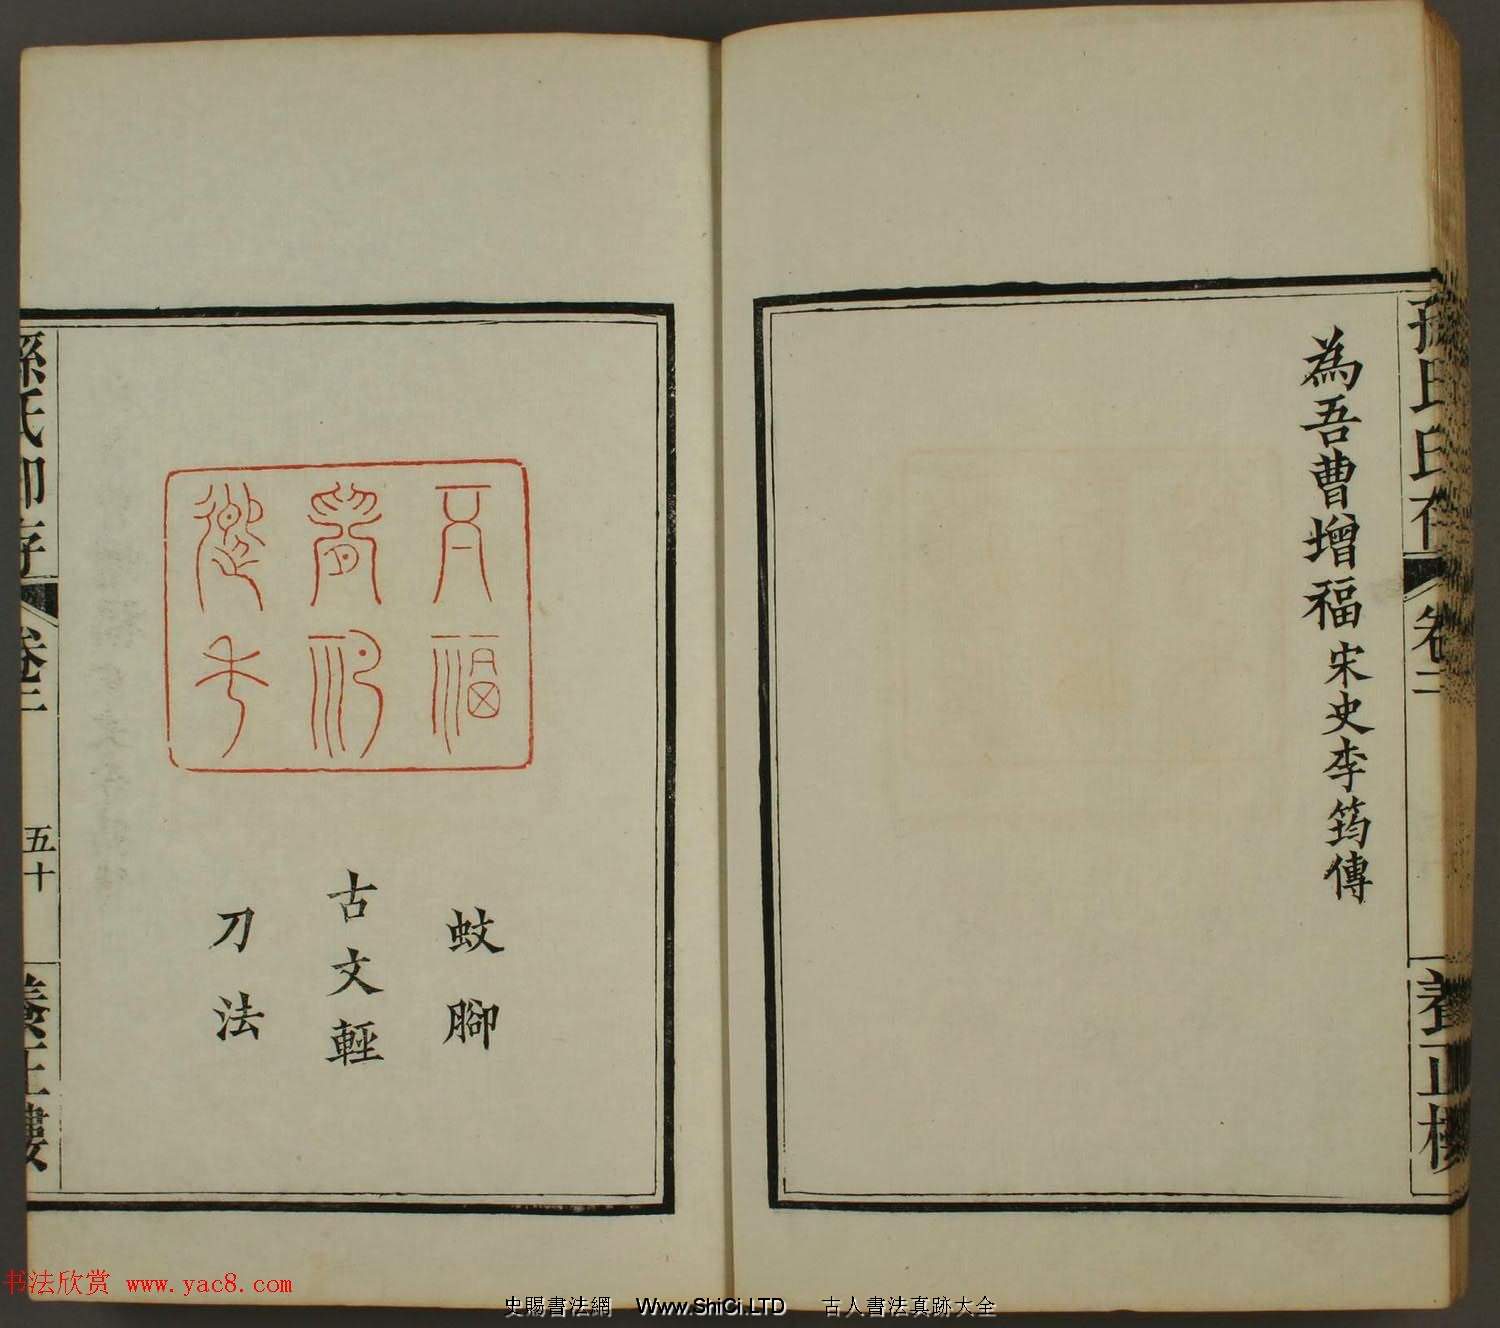 為吾曹增福 宋史李筠傳
孫氏印存
卷二
養正樓
蚊腳
古文輕
刀法
孫氏印存
卷二
五十
養正樓
书法欣赏 www.yac8.com
史賜書法網 Www.ShiCi.LTD 古人書法真跡大全